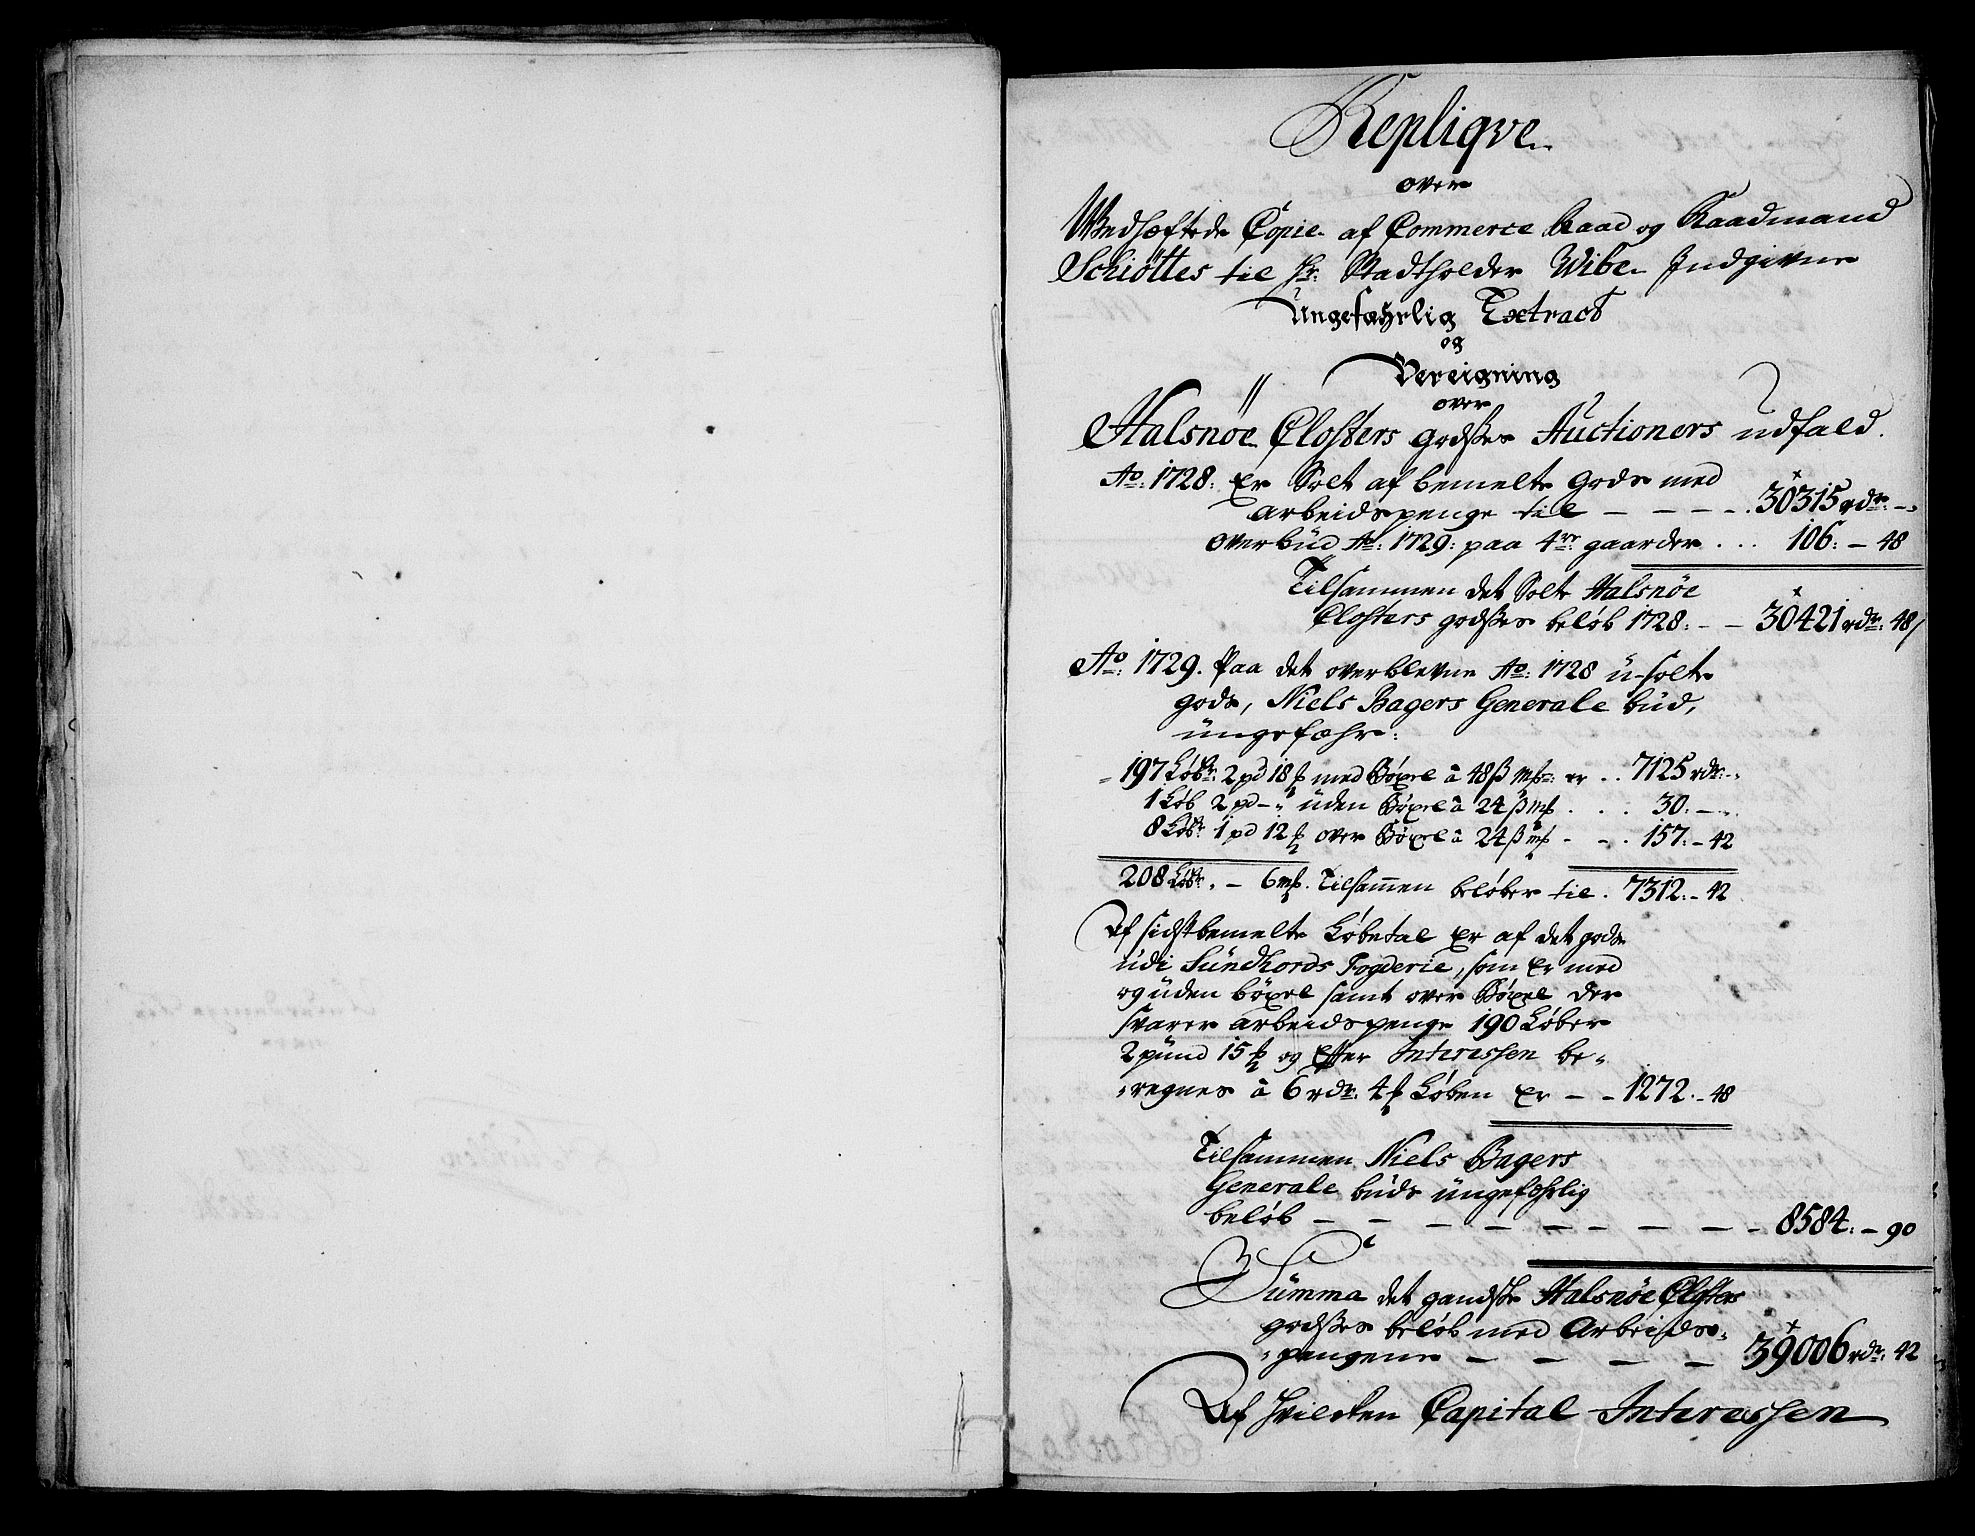 Repliqve
over
Wedhæftede Copie af Commerce Raad og Raadmand
Schiøttes til Hr: Stadtholder Wibe Indgivne
Ungefahrlig Extract
og
Bereigning
over
Halsnøe Closters godses Auctioners udfald.
Ao: 1728: Er Solt af bemelte Gods med
arbeidspenge til — — — 30315 rdr: —
overbud Ao: 1729: paa 4re: gaarder . . . 106: — 48
Tilsammen det Solte Halsnøe
Closters godses beløb 1728: — — 30421 rdr: 48
Ao: 1729. Paa det overblevne Ao: 1728 u-solte
gods, Niels Bagers Generale bud,
ungefæhr:
197 Løbr: 2 pd 18 med Bøxel à 48 ß er . . 7125 rdr: —
1 Løb 2 pd — uden Bøxel à 24 ß . . . 30: —
8 Løbr 1 pd 12 over Bøxel à 24 ß — — . 157: — 42
208 Løbr. — 6 Tilsammen beløber til . 7312: — 42
Af sidstbemelte Løbetal er af det gods
udi Sundhords Fogderie, som er med
og uden bøxel samt over Bøxel der
svarer arbeidspenge 190 Løber
2 pund 15 og Efter Interessen be-
-regnes à 6 rdr: 4 Løben er — — 1272. — 48
Tilsammen Niels Bagers
Generale buds ungefæhrlig
beløb — — — — — — — — 8584: — 90
Summa det gandske Halsnøe Closters
godses beløb med Arbeids-
-pengene — — — — 39006 rdr: 42
Af hvilcken Capital Interessen